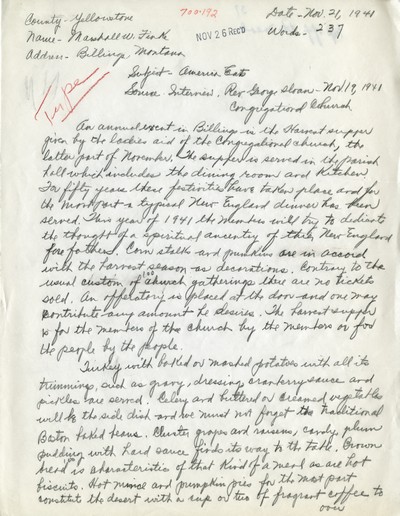 County - Yellowstone 700-192 Date - Nov. 21, 1941
Name - Marshall W. Fink NOV 26 REC'D Words - 237
Address - Billings, Montana
Subject - America Eats
Type Source - Interview, Rev George Sloan - Nov 19, 1941
Congregational Church
An annual event in Billings is the Harvest supper
given by the ladies aid of the Congregational church, the
latter part of November. The supper is served in the parish
hall which includes the dining room and kitchen.
For fifty years these festivities have taken place and for
the most part a typical New England dinner has been
served. This year of 1941 the members will try to dedicate
the thought of a spiritual ancestry of their New England
forefathers. Corn stalks and pumpkins are in accord
with the harvest season as decorations. Contrary to the
usual custom of church gatherings there are no tickets
sold. An offertory is placed at the door and one may
contribute any amount he desires. The harvest supper
is for the members of the church by the members or for
the people by the people.
Turkey with baked or mashed potatoes with all its
trimmings, such as gravy, dressing, cranberry sauce and
pickles are served. Celery and buttered or creamed vegetables
will be the side dish and we must not forget the traditional
Boston baked beans. Cluster grapes and raisins, candy, plum
pudding with hard sauce finds its way to the table. Brown
bread is characteristics of that kind of a meal as are hot
biscuits. Hot mince and pumpkin pies for the most part
constitute the desert with a cup or two of fragrant coffee to
over